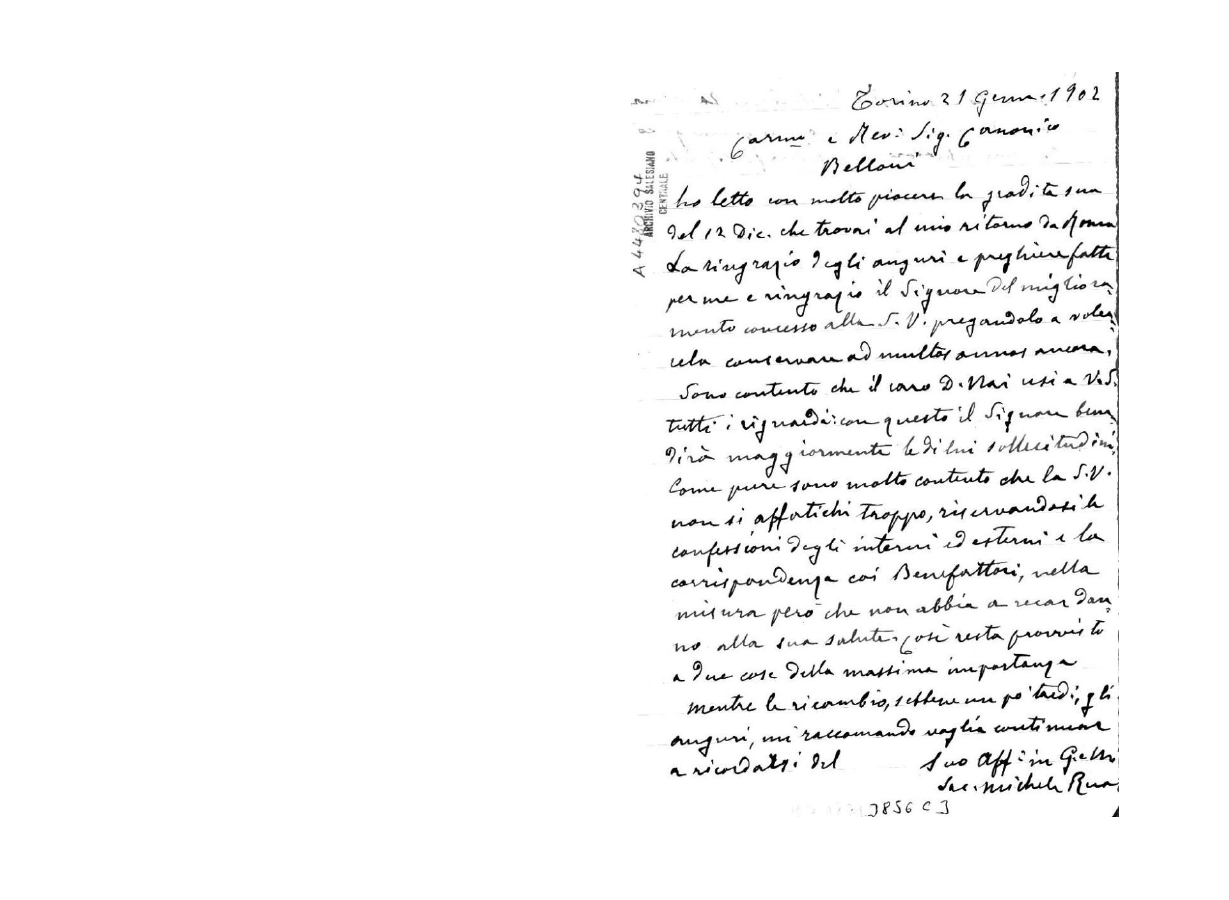 Torino 21 Genn. 1902
Carmo e Rev: Sig. Canonico
Belloni
ho letto con molto piacere la gradita sua
del 12 Dic. che trovai al mio ritorno da Roma
La ringrazio degli auguri e preghiere fatte
per me e ringrazio il Signore del migliora-
mento concesso alla S. V. pregandolo a voler
cela conservare ad multos annos ancora.
Sono contento che il caro D. Nai usi a V. S.
tutti i riguardi: con questo il Signore bene
dirà maggiormente le di lui sollecitudini.
Come pure sono molto contento che la S. V.
non si affatichi troppo, riservandosi le
confessioni degli interni ed esterni e la
corrispondenza coi Benefattori, nella
misura però che non abbia a recar dan
no alla sua salute. Così resta provvisto
a due cose della massima importanza
Mentre le ricambio, sebbene un po' tardi, gli
auguri, mi raccomando voglia continuar
a ricordarsi del Suo Aff: in G. e M.
Sac. Michele Rua
3856 C 3
A4480394
ARCHIVIO SALESIANO
CENTRALE